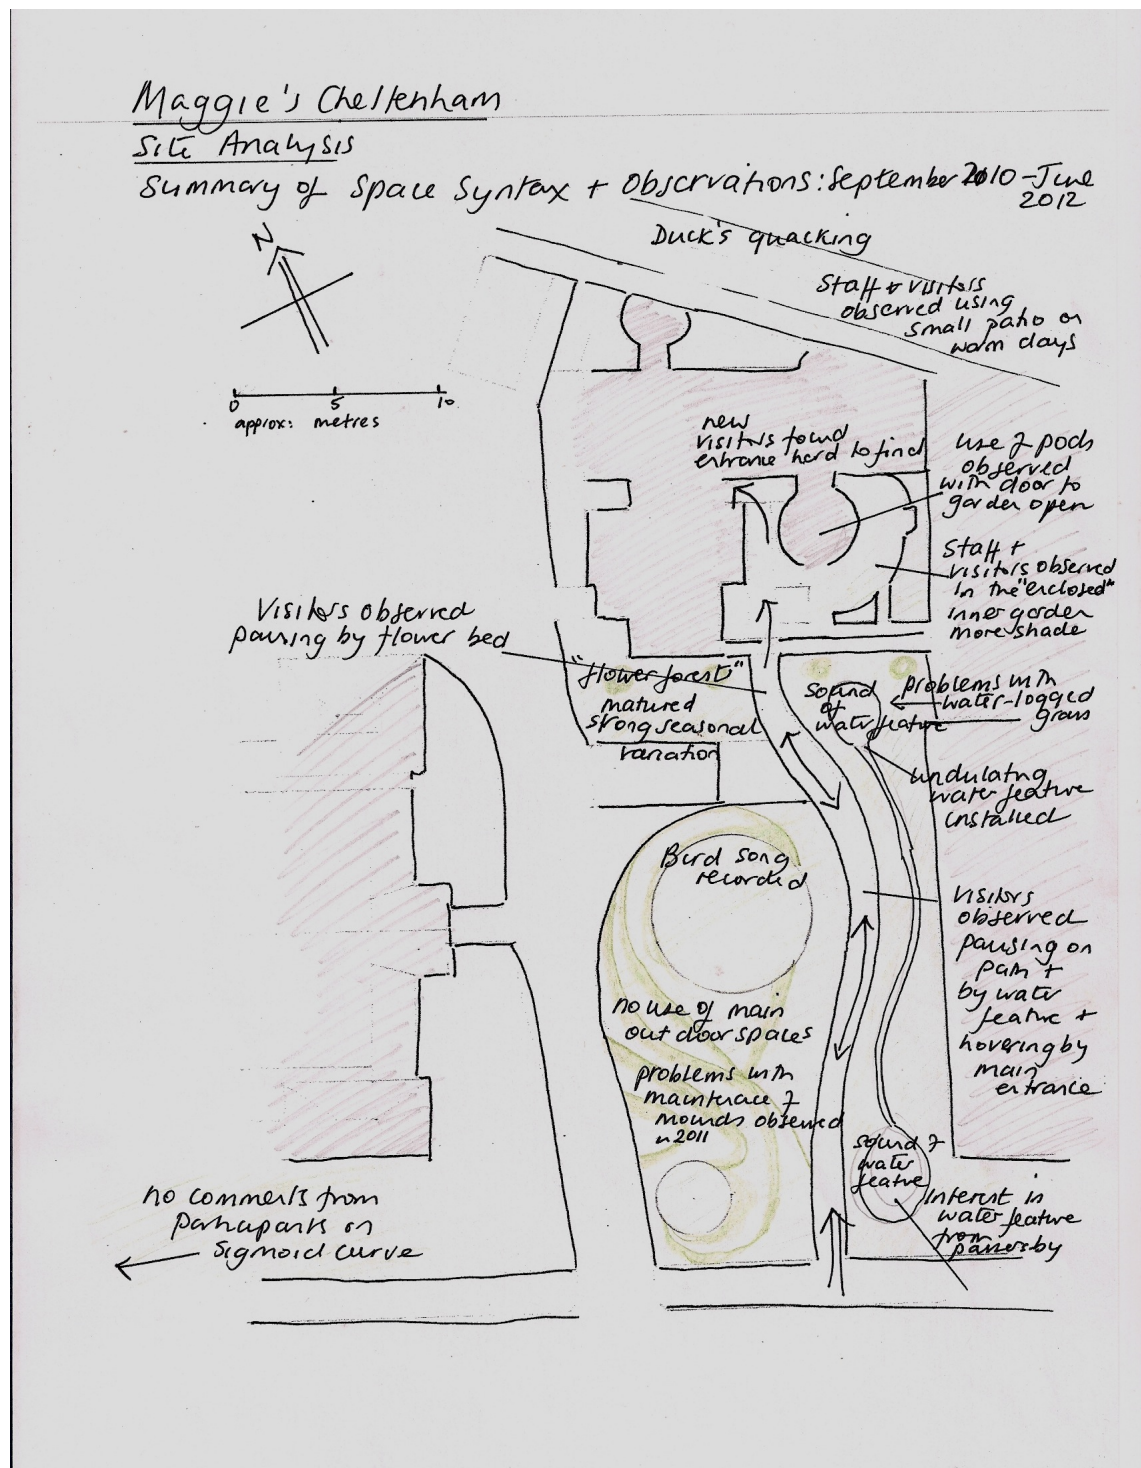 Maggie's Cheltenham
Site Analysis
Summary of Space Syntax + Observations: September 2010 - June
2012
N
Duck's quacking
Staff + visitors
observed using
small patio on
warm days
0 5 10
approx: metres
new
visitors found
entrance hard to find
use of pods
observed
with door to
garden open
Staff +
visitors observed
in the "enclosed"
inner garden
more shade
Visitors observed
pausing by flower bed
"flower forest"
matured
strong seasonal
variation
sound
of
water feature
problems with
water-logged
grass
undulating
water feature
installed
Bird song
recorded
visitors
observed
pausing on
path +
by water
feature +
hovering by
main
entrance
no use of main
out door spaces
problems with
maintenace of
mounds observed
in 2011
sound of
water
feature
interest in
water feature
from
passersby
no comments from
participants on
sigmoid curve